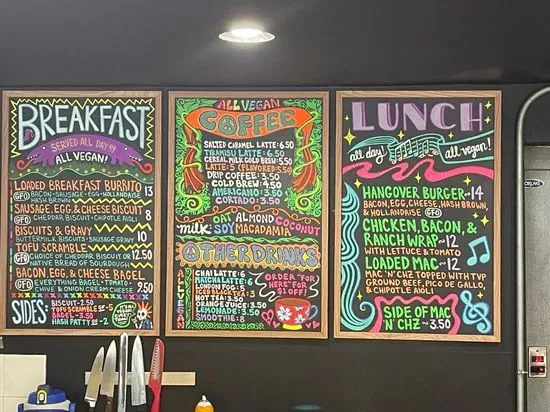 BREAKFAST
SERVED ALL DAY!!!
ALL VEGAN!
LOADED BREAKFAST BURRITO
GFO BACON • SAUSAGE • EGG • HOLLANDAISE 13
HASH BROWN
SAUSAGE, EGG, & CHEESE BISCUIT
GFO CHEDDAR BISCUIT • CHIPOTLE AIOLI 8
BISCUITS & GRAVY
BUTTERMILK BISCUITS • SAUSAGE GRAVY 10
TOFU SCRAMBLE
GFO CHOICE OF CHEDDAR BISCUIT OR 12.50
NATIVE BREAD GF SOURDOUGH
BACON, EGG, & CHEESE BAGEL
GFO EVERYTHING BAGEL • TOMATO
CHIVE & ONION CREAM CHEESE
SIDES:
BISCUIT - 2.50
TOFU SCRAMBLE GF - 5
BAGEL - 3.50
HASH PATTY GF - 2
ALL VEGAN
COFFEE
SALTED CARAMEL LATTE: 6.50
TIRAMISU LATTE: 6.50
CEREAL MILK COLD BREW: 5.50
LATTE: 5 (FLAVORED 5.50)
DRIP COFFEE: 3.50
COLD BREW: 4.50
AMERICANO: 3.50
CORTADO: 3.50
milk
ALMOND COCONUT
SOY MACADAMIA
OTHER DRINKS
ALL VEGAN
CHAI LATTE: 6
MATCHA LATTE: 6
LONDON FOG: 5
HOT TEA: 3.50
ORANGE JUICE: 3.50
LEMONADE: 3.50
SMOOTHIE: 8
ORDER "FOR
HERE" FOR
$1 OFF!
LUNCH
all day! all vegan!
HANGOVER BURGER ~ 14
BACON, EGG, CHEESE, HASH BROWN,
& HOLLANDAISE GFO
CHICKEN, BACON, &
RANCH WRAP ~ 12
WITH LETTUCE & TOMATO
LOADED MAC ~ 12
MAC 'N' CHZ TOPPED WITH
GROUND BEEF, PICO DE GALLO,
& CHIPOTLE AIOLI
SIDE OF MAC
N' CHZ ~ 3.50